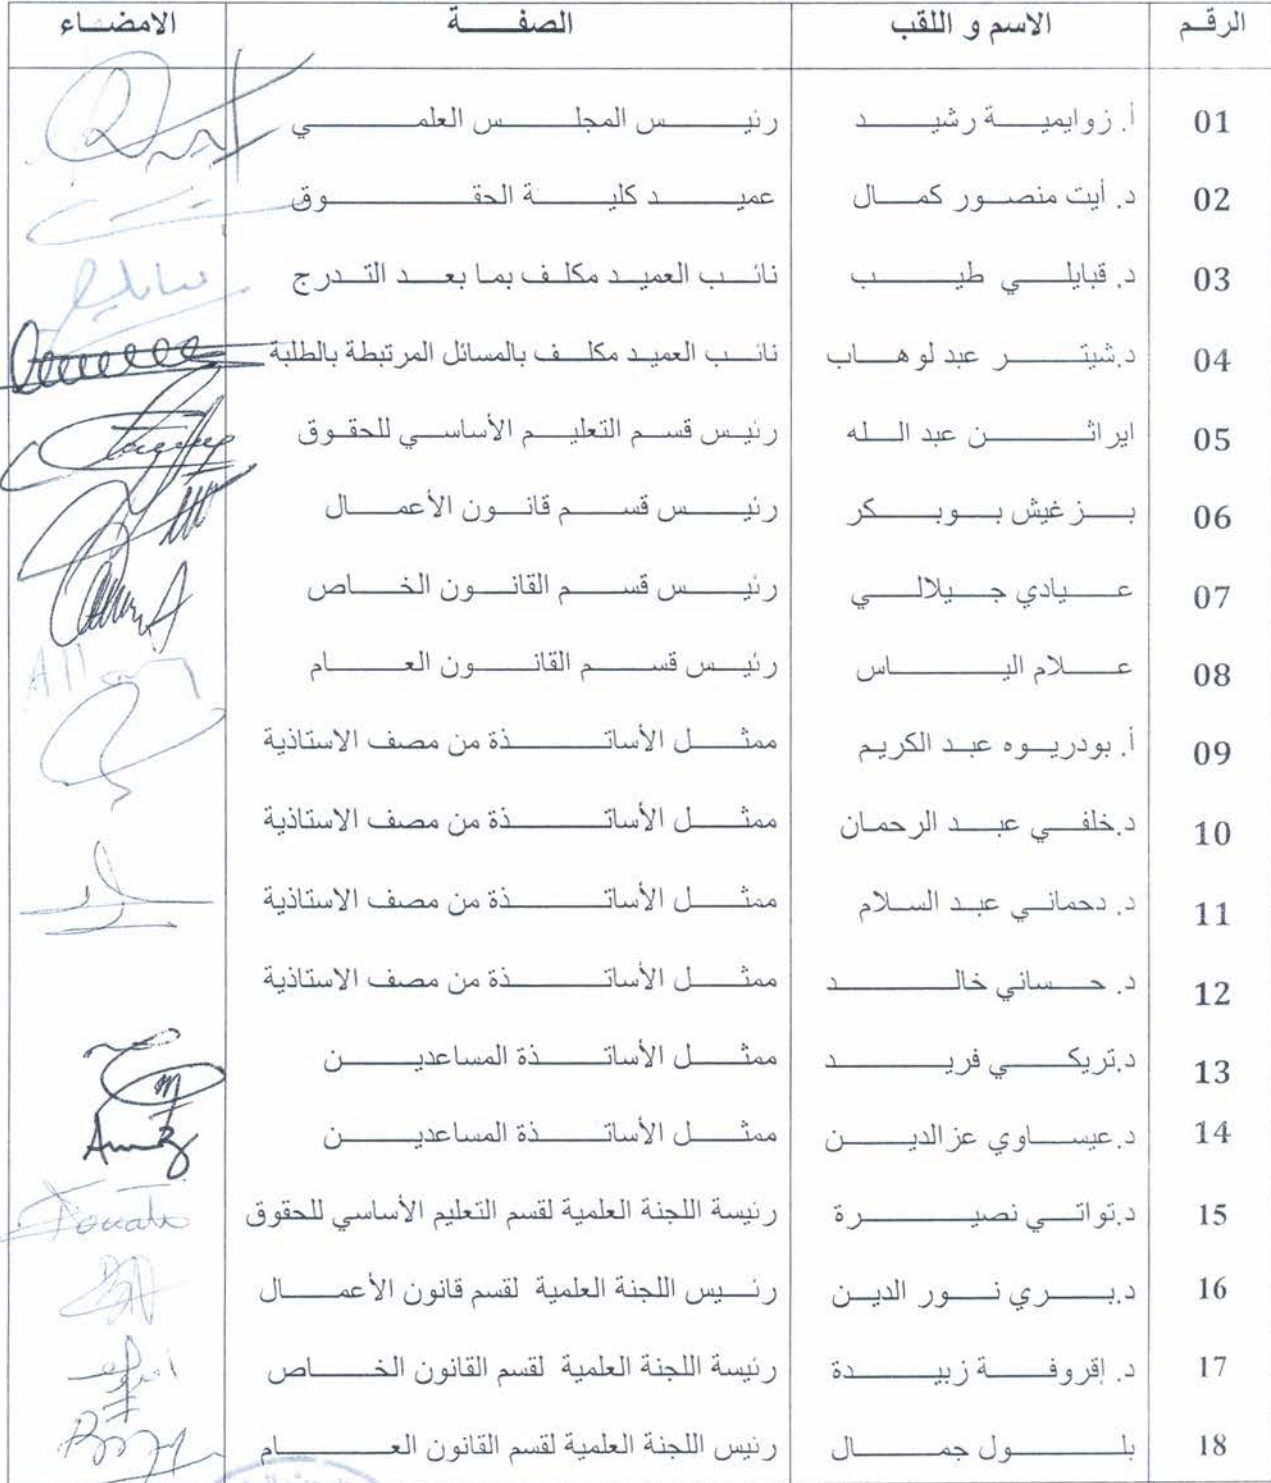 الرقم الاسم و اللقب الصفة الامضاء
01 أ. زوايمية رشيد رئيس المجلس العلمي
02 د. أيت منصور كمال عميد كلية الحقوق
03 د. قبايلي طيب نائب العميد مكلف بما بعد التدرج
04 د.شيتر عبد لوهاب نائب العميد مكلف بالمسائل المرتبطة بالطلبة
05 ايراثن عبد الله رئيس قسم التعليم الأساسي للحقوق
06 بزغيش بوبكر رئيس قسم قانون الأعمال
07 عيادي جيلالي رئيس قسم القانون الخاص
08 علام الياس رئيس قسم القانون العام
09 أ. بودريوه عبد الكريم ممثل الأساتذة من مصف الاستاذية
10 د.خلفي عبد الرحمان ممثل الأساتذة من مصف الاستاذية
11 د. دحماني عبد السلام ممثل الأساتذة من مصف الاستاذية
12 د. حساني خالد ممثل الأساتذة من مصف الاستاذية
13 د.تريكي فريد ممثل الأساتذة المساعدين
14 د.عيساوي عزالدين ممثل الأساتذة المساعدين
15 د.تواتي نصيرة رئيسة اللجنة العلمية لقسم التعليم الأساسي للحقوق
16 د.بري نور الدين رئيس اللجنة العلمية لقسم قانون الأعمال
17 د. إقروفة زبيدة رئيسة اللجنة العلمية لقسم القانون الخاص
18 بلول جمال رئيس اللجنة العلمية لقسم القانون العام